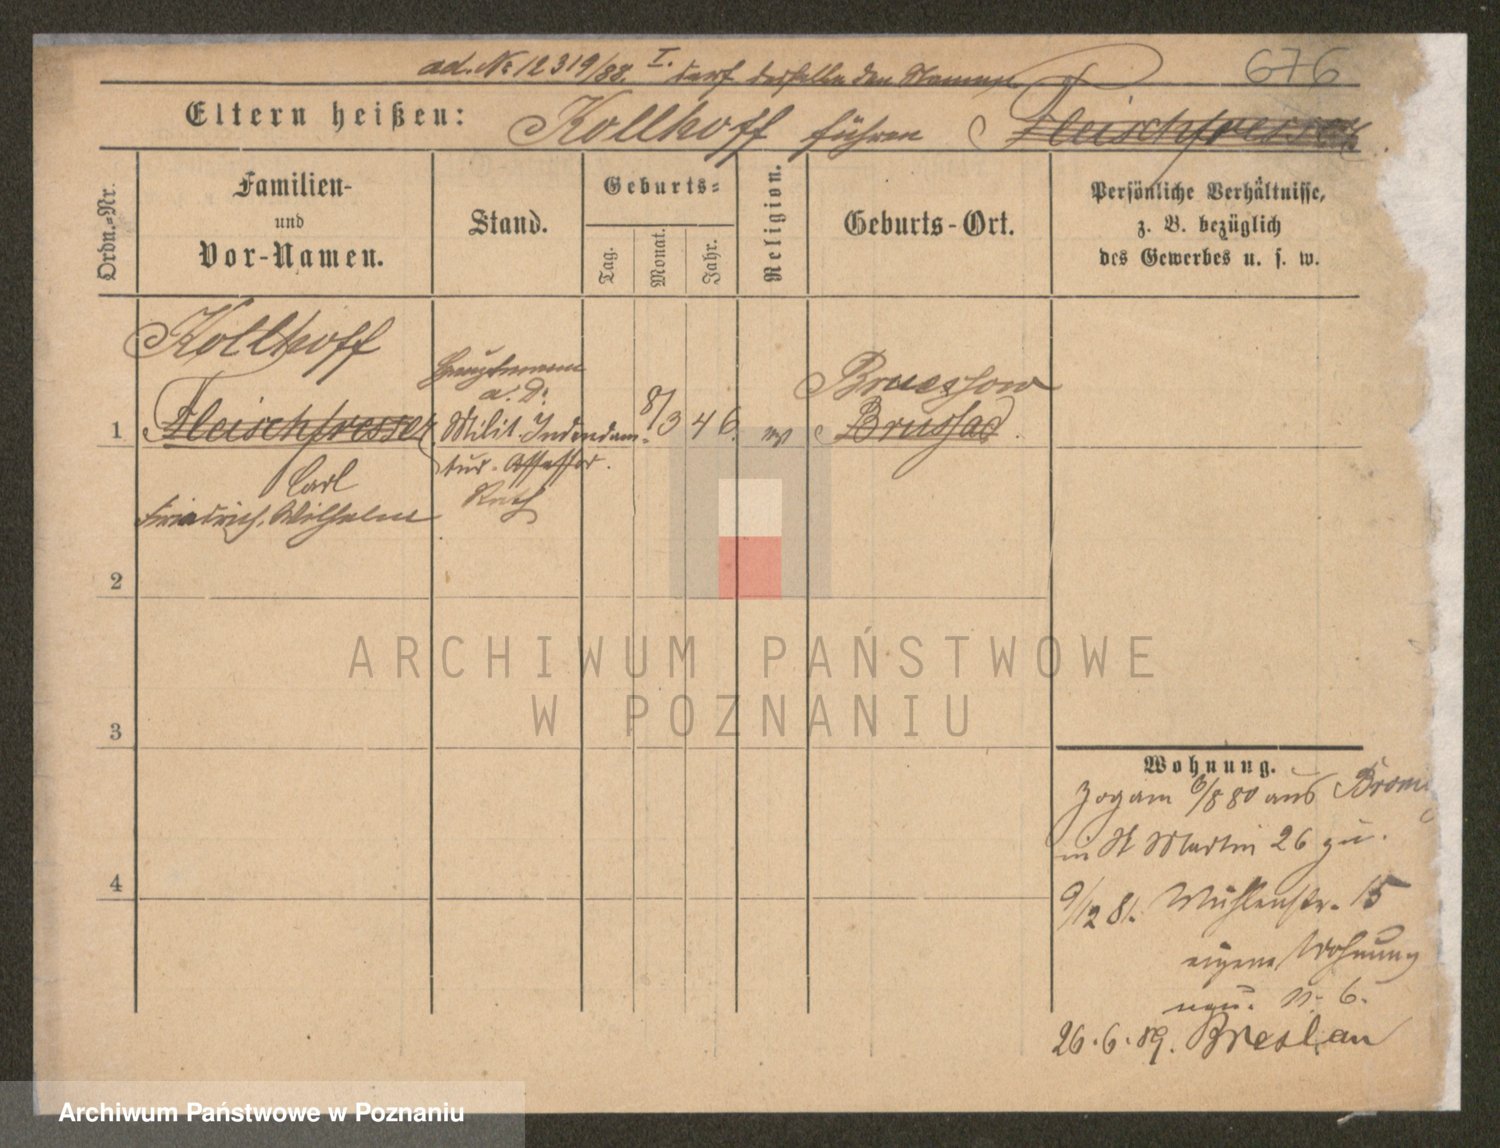 676
ad. No 12319/88. I. darf derselbe den Namen
Eltern heißen: Kollhoff führen Fleischfresser
Ordn.-Nr.
Familien-
und
Vor-Namen.
Stand.
Geburts-
Tag.
Monat.
Jahr.
Religion.
Geburts-Ort.
Persönliche Verhältnisse,
z. B. bezüglich
des Gewerbes u. s. w.
Kollhoff
1 Fleischfresser
Carl
Friedrich, Wilhelm
Hauptmann
a. D.
Milit. Indendan-
tur. Assessor.
Rath
8/3 46.
Bruessow
Brussad
2
3
4
Wohnung.
zog am 6/8 80 aus Brom
in St Martin 26 zu.
9/12 81. Mühlenstr. 15
eigene Wohnung
neu. n. 6.
26.6.89. Breslau
ARCHIWUM PAŃSTWOWE
W POZNANIU
Archiwum Państwowe w Poznaniu